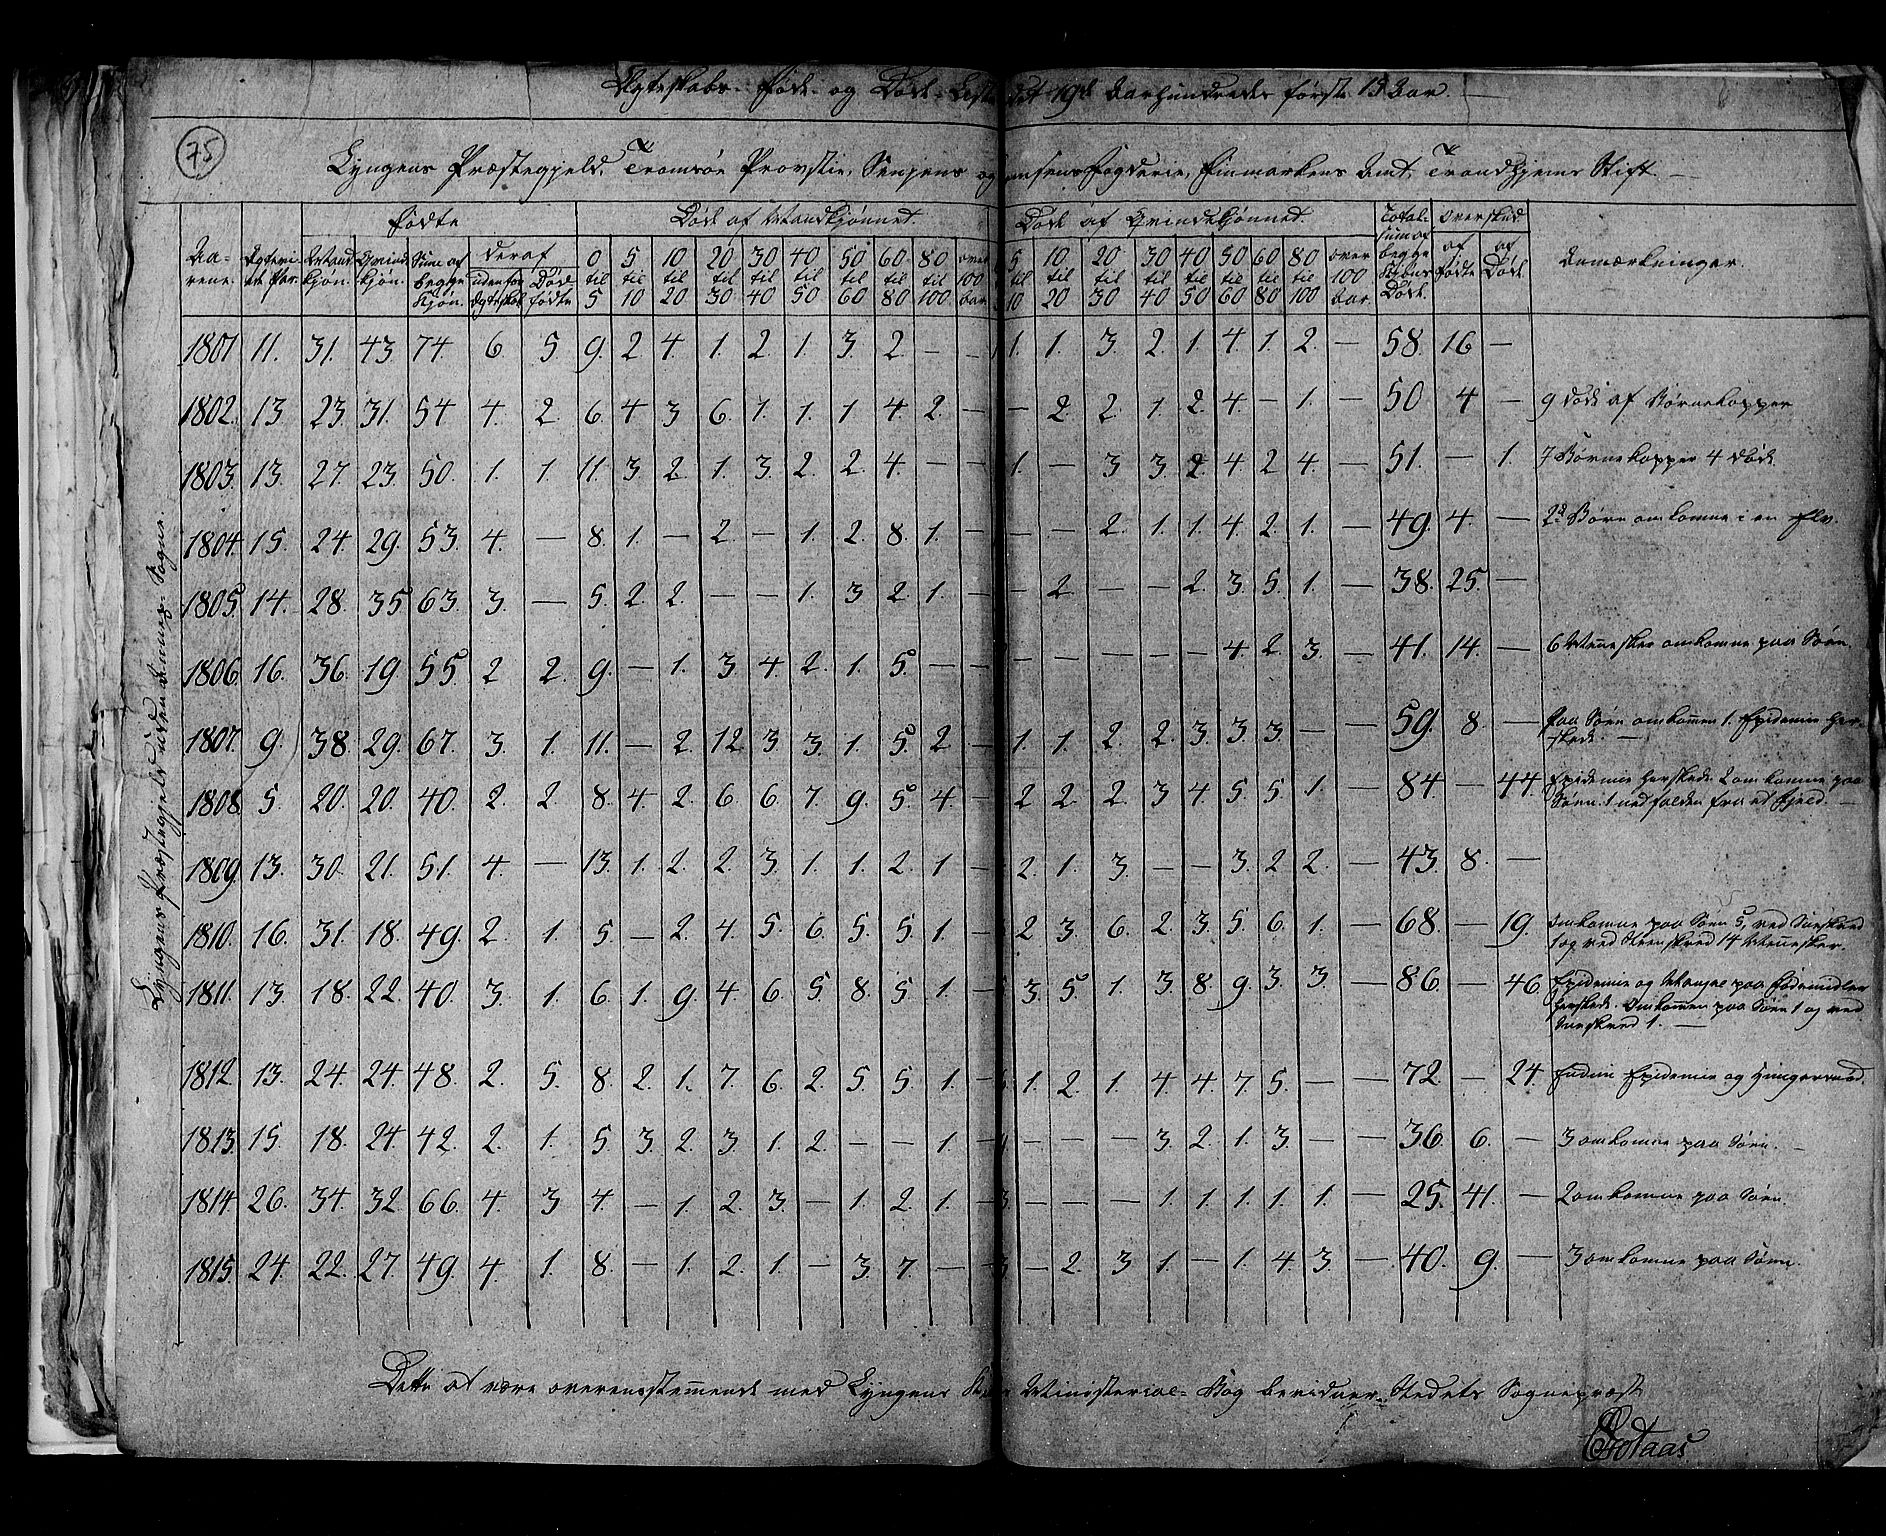 Ægteskabs- Føde- og Døde- Liste det 19de Aarhundredes første 15 Aar.
75
Lyngens Præstegjeld, Tromsøe Provstie, Senjens og Tromsens Fogderie, Finmarkens Amt, Trondhjems Stift.
Fødte Døde af Mandkjønnet. Døde af Qvindekjønnet. Total- Overskud
Aa- Ægtevi- Mand- Qvind- Sum af Deraf 0 5 10 20 30 40 50 60 80 over 5 10 20 30 40 50 60 80 over Sum af af af Anmærkninger.
rene. ede Par. kjøn. kjøn. begge uden for Død- til til til til til til til til til 100 til til til til til til til til 100 begge Fødte Døde.
Kjøn. Ægteskab fødte 5 10 20 30 40 50 60 80 100 Aar. 10 20 30 40 50 60 80 100 Aar. Kjøns Døde.
Lyngens Præstegjeld uden Annex-Sogne.
1801 11. 31. 43. 74. 6. 5 9. 2 4. 1. 2. 1. 3. 2. — — 1. 1. 3. 2. 1 4. 1. 2. — 58. 16 —
1802. 13. 23. 31. 54 4. 2. 6. 4. 3 6. 1. 1. 1 4. 2. — — 2 2. 1. 2. 4. — 1. — 50 4 — 9 døde af Børnekopper
1803. 13. 27. 23. 50. 1. 1. 11. 3 2. 1. 3. 2. 2. 4. — — 1. — 3 3. 2 4 2 4. — 51. — 1. 7 Børnekopper 4 døde
1804. 15. 24. 29. 53. 4. — 8. 1. — 2. — 1. 2. 8. 1. — — — 2 1. 1. 4. 2. 1. — 49. 4. — 2de Børn omkomne i en Elv.
1805. 14. 28. 35 63. 3. — 5. 2. 2. — — 1. 3 2. 1. — — 2. — — 2. 3. 5. 1. — 38. 25. —
1806. 16. 36. 19. 55. 2 2. 9. — 1. 3 4. 2. 1. 5. — — — — — — — 4. 2. 3. — 41. 14. — 6 Mennesker omkomne paa Søen.
1807. 9. 38. 29. 67. 3. 1. 11. — 2. 12. 3 3. 1. 5. 2. — 1. 1. 2. 2. 3. 3. 3. — — 59. 8. — Paa Søen omkommen 1. Epidemie her-
skede. —
1808. 5. 20. 20. 40. 2. 2 8. 4. 2. 6. 6. 7. 9. 5. 4. — 2 2. 2. 3 4. 5. 5. 1. — 84. — 44. Epidemie herskede. 2 omkomne paa
Søen. 1 nedfalden fra et Fjeld. —
1809. 13. 30. 21. 51. 4. — 13. 1. 2. 2. 3. 1. 1. 2. 1. — 2. 1. 3. — — 3. 2 2. — 43. 8. —
1810. 16. 31. 18. 49. 2. 1. 5. — 2. 4. 5. 6. 5. 5. 1. — 2 3. 6. 2. 3. 5. 6. 1. — 68. — 19. Omkomne paa Søen 5, ved Sneskred
1 og ved Steenskred 14 Mennesker.
1811. 13. 18. 22. 40. 3. 1. 6. 1. 9. 4. 6. 5. 8. 5. 1. — 3. 5. 1. 3 8. 9. 3 3. — 86. — 46. Epidemie og Mangel paa Fødemidler
herskede. Omkommen paa Søen 1 og ved
Sneskred 1. —
1812. 13. 24. 24. 48. 2. 5. 8. 2. 1. 7. 6. 2. 5. 5. 1. — 1. 2. 1. 4. 4. 7 5. — — 72. — 24. Epidemie og Hungersnød.
1813. 15. 18. 24. 42. 2. 1. 5 3. 2. 3. 1. 2. — — 1. — — — — 3. 2. 1. 3. — — 36. 6. — 3 omkomne paa Søen. —
1814. 26. 34. 32. 66. 4. 3 4. — 1. 2. 3. — 1. 2. 1. — 3 — — — 1. 1. 1. 1. 1. — 25. 41. — 2 omkomne paa Søen.
1815. 24. 22. 27. 49. 4. 1. 8. — 1. 2. 1. — 3. 7. — — 3 — 2. 3 1. — 1. 4 3 — 40. 9. — 3 omkomne paa Søen.
Dette at være overensstemmende med Lyngens Ministerial-Bog bevidner Stedets Sognepræst